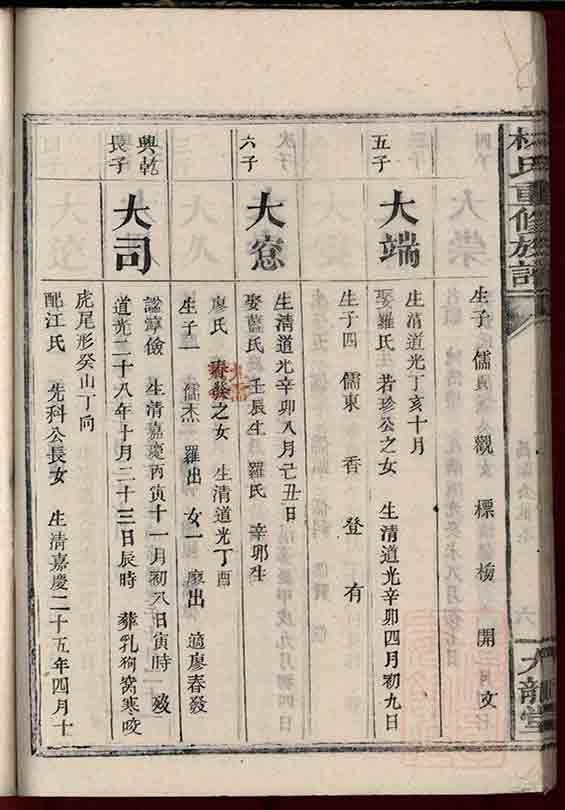 林氏重修族譜
九龍堂
生子 儒 觀 標 楊 開 文
五子
大端
生清道光丁亥十月
娶羅氏 若珍公之女 生清道光辛卯四月初九日
生子四 儒東 香 登 有
六子
大㥯
生清道光辛卯八月己丑日
娶藍氏 壬辰生 羅氏 辛卯生
廖氏 春發之女 生清道光丁酉
生子一 儒杰 羅出 女一 廖出 適廖春發
興乾
長子
大司
諡淳儉 生清嘉慶丙寅十一月初八日寅時 歿
道光二十八年十月二十三日辰時 葬乳狗窩寒咬
虎尾形癸山丁向
配江氏 先科公長女 生清嘉慶二十五年四月十